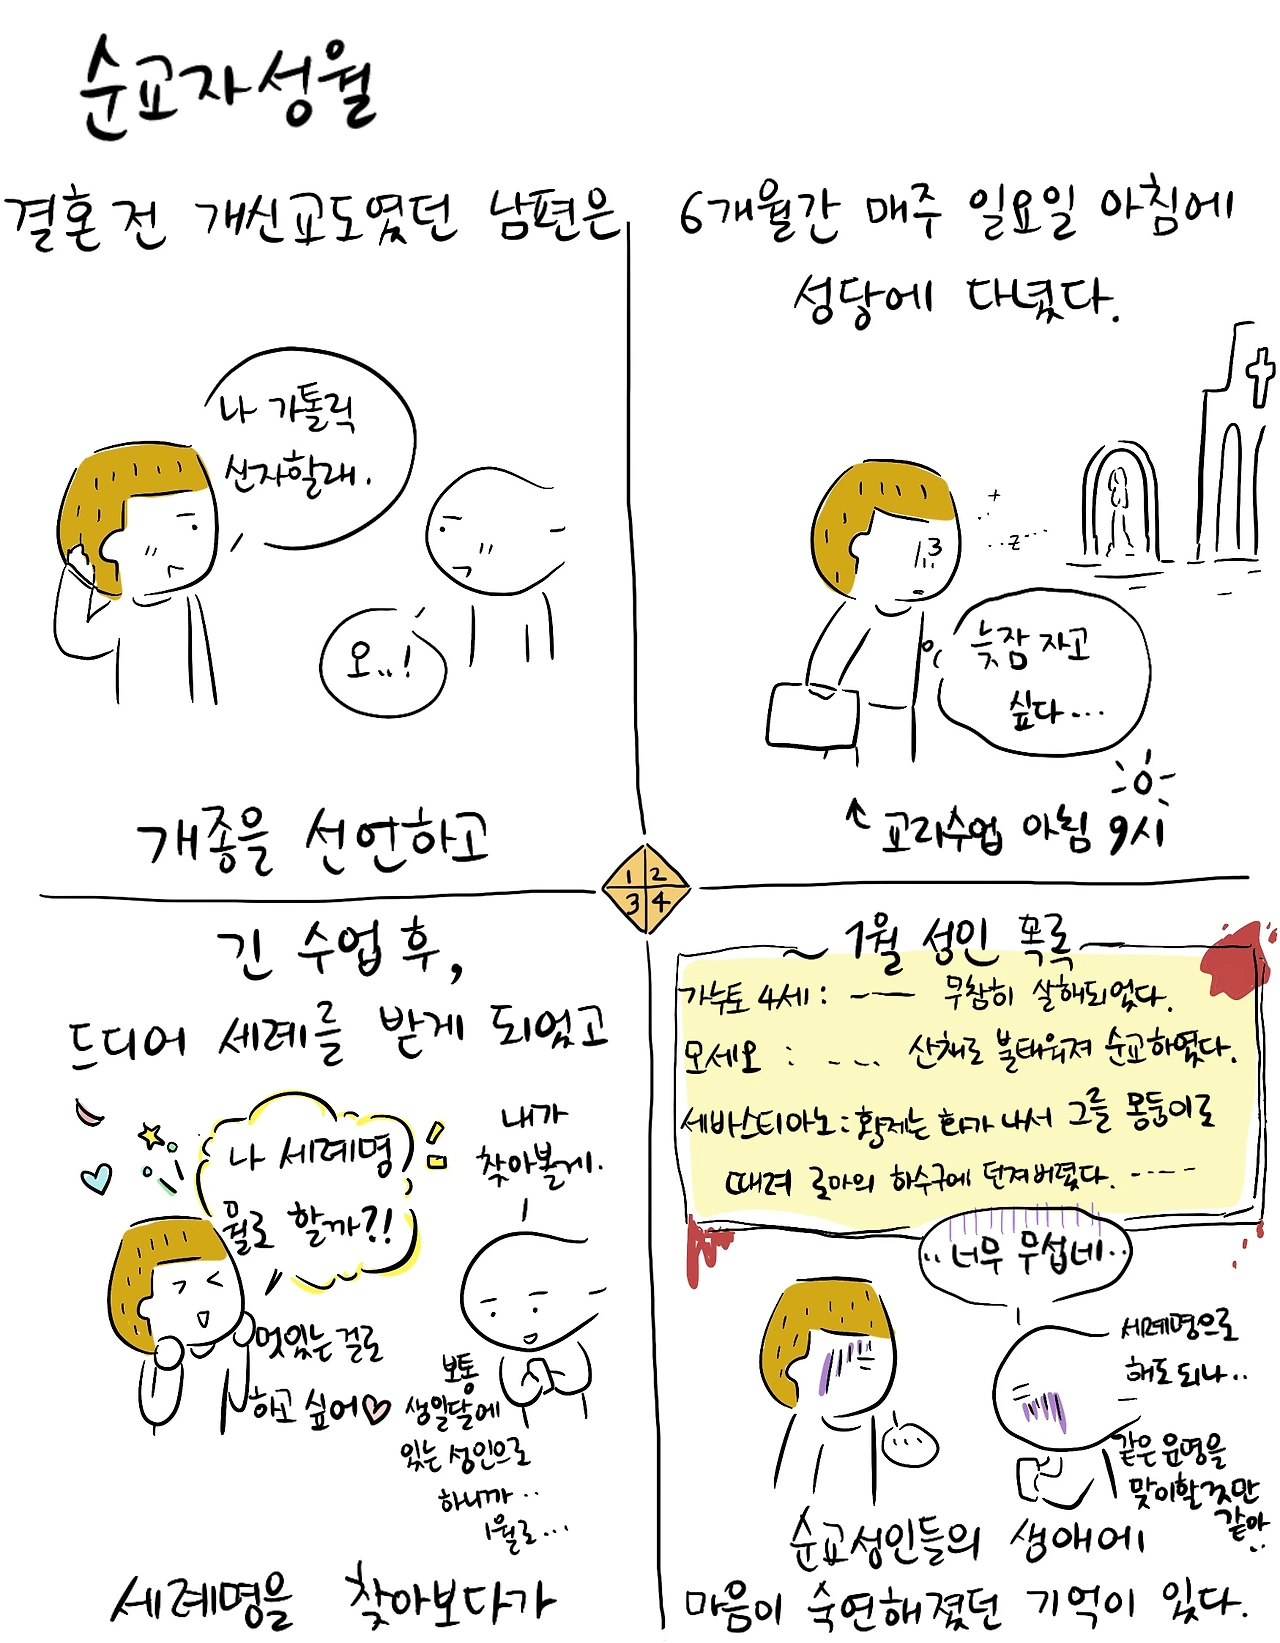 순교자성월
결혼 전 개신교도였던 남편은
나 가톨릭
신자할래.
오..!
개종을 선언하고
6개월간 매주 일요일 아침에
성당에 다녔다.
z
늦잠 자고
싶다...
↑ 교리수업 아침 9시
1 2
3 4
긴 수업 후,
드디어 세례를 받게 되었고
나 세례명
뭘로 할까?!
멋있는 걸로
하고 싶어♡
내가
찾아볼게.
보통
생일달에
있는 성인으로
하니까..
1월로...
세례명을 찾아보다가
~ 1월 성인 목록
가누토 4세 : -― 무참히 살해되었다.
모세오 : .-.. 산채로 불태워져 순교하였다.
세바스티아노 : 황제는 화가 나서 그를 몽둥이로
때려 로마의 하수구에 던져버렸다. ----
..너무 무섭네..
세례명으로
해도 되나..
...
같은 운명을
맞이할 것만
같아..
순교성인들의 생애에
마음이 숙연해졌던 기억이 있다.